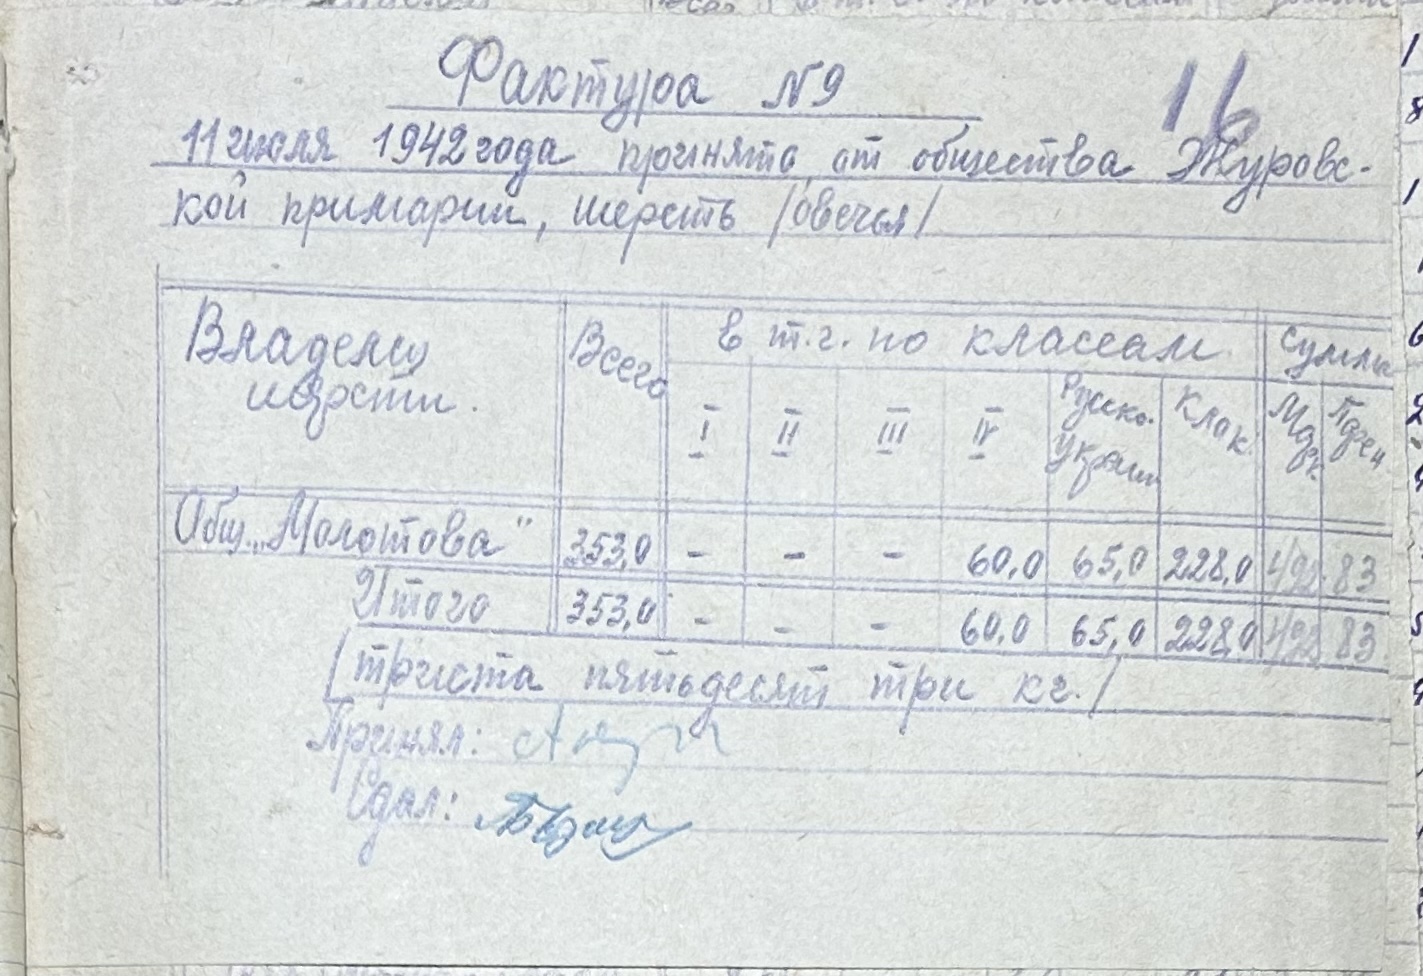 Фактура №9
16
11 июля 1942 года принято от общества Журовс-
кой примарии, шерсть /овечья/
Владелец шерсти. Всего в т.г. по классам Сумма
I II III IV Русско. Украин Клок Марк Пфен
Общ. „Молотова" 353,0 - - - 60,0 65,0 228,0 492 83
Итого 353,0 - - - 60,0 65,0 228,0 492 83
/триста пятьдесят три кг./
Принял:
Сдал: